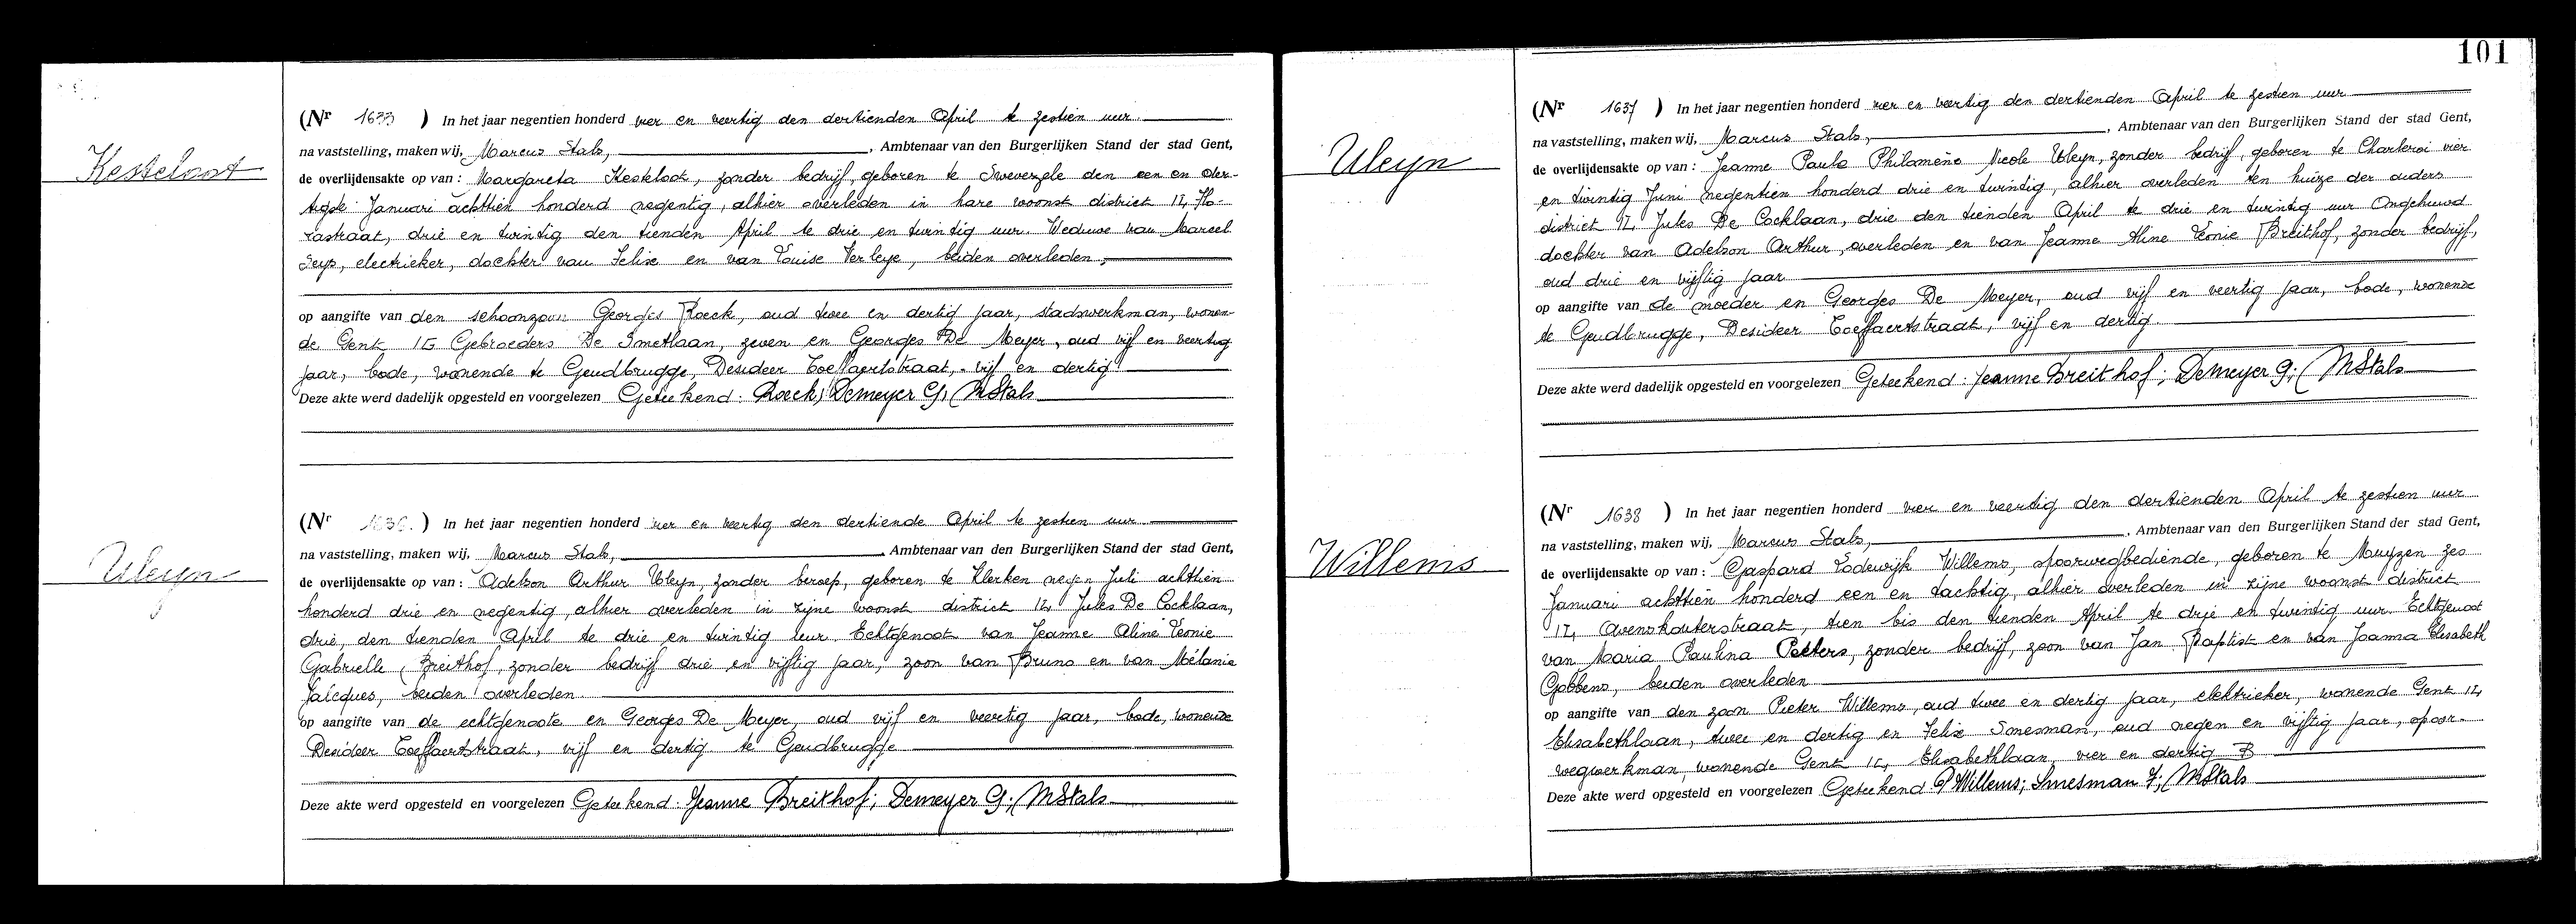 Kesteloot
(Nr 1633 ) In het jaar negentien honderd vier en veertig den dertienden April te zestien uur
na vaststelling, maken wij, Marcus Stals, , Ambtenaar van den Burgerlijken Stand der stad Gent,
de overlijdensakte op van : Margareta Kesteloot, zonder bedrijf, geboren te Swevezele den een en der-
tigste Januari achttien honderd negentig, alhier overleden in hare woonst district 12, Flo-
rastraat, drie en twintig den tienden April te drie en twintig uur. Weduwe van Marcel
Seys, electrieker, dochter van Felix en van Louise Verleye, beiden overleden,
op aangifte van den schoonzoon Georges Roeck, oud twee en dertig jaar, stadswerkman, wonen-
de Gent Gebroeders De Smetlaan, zeven en Georges De Meyer, oud vijf en veertig
jaar, bode, wonende te Gendbrugge, Desideer Toeffaertstraat, vijf en dertig
Deze akte werd dadelijk opgesteld en voorgelezen Geteekend : Roeck; Demeyer G; MStals
Uleyn
(Nr ) In het jaar negentien honderd vier en veertig den dertiende April te zestien uur
na vaststelling, maken wij, Marcus Stals, , Ambtenaar van den Burgerlijken Stand der stad Gent,
de overlijdensakte op van : Adelson Arthur Uleyn, zonder beroep, geboren te Klerken negen Juli achttien
honderd drie en negentig, alhier overleden in zijne woonst district 12, Jules De Cocklaan,
drie, den tienden April te drie en twintig uur. Echtgenoot van Jeanne Aline Leonie
Gabrielle Breithof, zonder bedrijf drie en vijftig jaar, zoon van Bruno en van Mélanie
Jacques, beiden overleden
op aangifte van de echtgenoote en Georges De Meyer, oud vijf en veertig jaar, bode, wonende
Desideer Toeffaertstraat, vijf en dertig te Gendbrugge
Deze akte werd opgesteld en voorgelezen Geteekend : Jeanne Breithof; Demeyer G; MStals
101
Uleyn
(Nr 1637 ) In het jaar negentien honderd vier en veertig den dertienden April te zestien uur
na vaststelling, maken wij, Marcus Stals, , Ambtenaar van den Burgerlijken Stand der stad Gent,
de overlijdensakte op van : Jeanne Paula Philomène Nicole Uleyn, zonder bedrijf, geboren te Charleroi vier
en twintig Juni negentien honderd drie en twintig, alhier overleden ten huize der ouders
district 12, Jules De Cocklaan, drie den tienden April te drie en twintig uur Ongehuwd
dochter van Adelson Arthur, overleden en van Jeanne Aline Leonie Breithof, zonder bedrijf,
oud drie en vijftig jaar
op aangifte van de moeder en Georges De Meyer, oud vijf en veertig jaar, bode, wonende
te Gendbrugge, Desideer Toeffaertstraat, vijf en dertig.
Deze akte werd dadelijk opgesteld en voorgelezen Geteekend : Jeanne Breithof; Demeyer G; MStals
Willems
(Nr 1638 ) In het jaar negentien honderd vier en veertig den dertienden April te zestien uur
na vaststelling, maken wij, Marcus Stals, , Ambtenaar van den Burgerlijken Stand der stad Gent,
de overlijdensakte op van : Gaspard Lodewijk Willems, spoorwegbediende, geboren te Muyzen zes
Januari achttien honderd een en tachtig, alhier overleden in zijne woonst district
12, Avenskouterstraat, tien bis den tienden April te drie en twintig uur. Echtgenoot
van Maria Paulina Peeters, zonder bedrijf, zoon van Jan Baptist en van Joanna Elisabeth
Gobbens, beiden overleden
op aangifte van den zoon Pieter Willems, oud twee en dertig jaar, elektrieker, wonende Gent 12,
Elisabethlaan, twee en dertig en Felix Smesman, oud negen en vijftig jaar, spoor-
wegwerkman, wonende Gent 12, Elisabethlaan, vier en dertig B
Deze akte werd opgesteld en voorgelezen Geteekend : P Willems; Smesman F; MStals